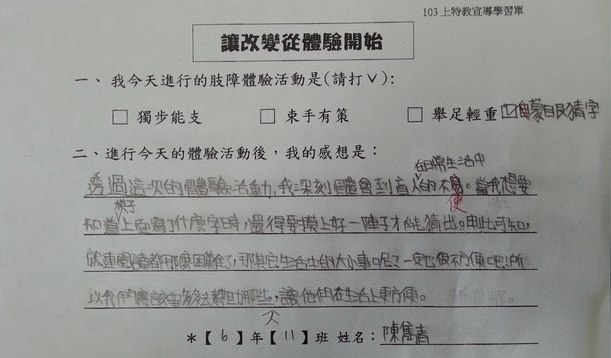 103上特教宣導學習單
讓改變從體驗開始
一、我今天進行的肢障體驗活動是(請打∨):
□ 獨步能支 □ 束手有策 □ 舉足輕重 蒙眼猜字
二、進行今天的體驗活動後,我的感想是:
在日常生活中
透過這次的體驗活動,我深刻體會到盲人的不便。當我想要
棋子
知道上面寫了什麼字時,還得要摸上好一陣子才能猜出。由此可知,
就連閱讀都那麼困難了,那其它生活上的大小事呢?一定也很不方便吧!所
以我們應該要多多去幫助那些人,讓他們在生活上更方便。
*【6】年【11】班 姓名:陳